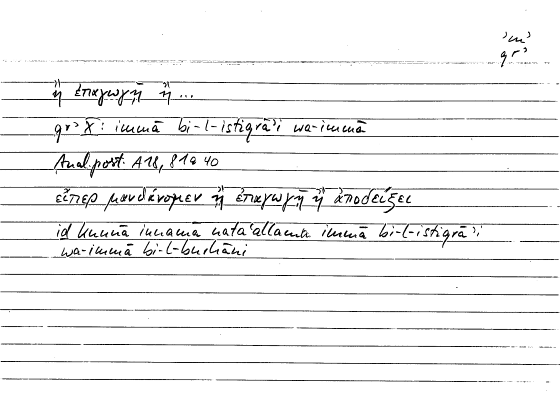 ʾmʾ
qrʾ
ἢ ἐπαγωγῇ ἢ ...
qrʾ X̄: immā bi-l-istiqrāʾi wa-immā
Anal. post. A 18, 81 a 40
εἴπερ μανθάνομεν ἢ ἐπαγωγῇ ἢ ἀποδείξει
iḏ kunnā innamā nataʿallamu immā bi-l-istiqrāʾi
wa-immā bi-l-burhāni